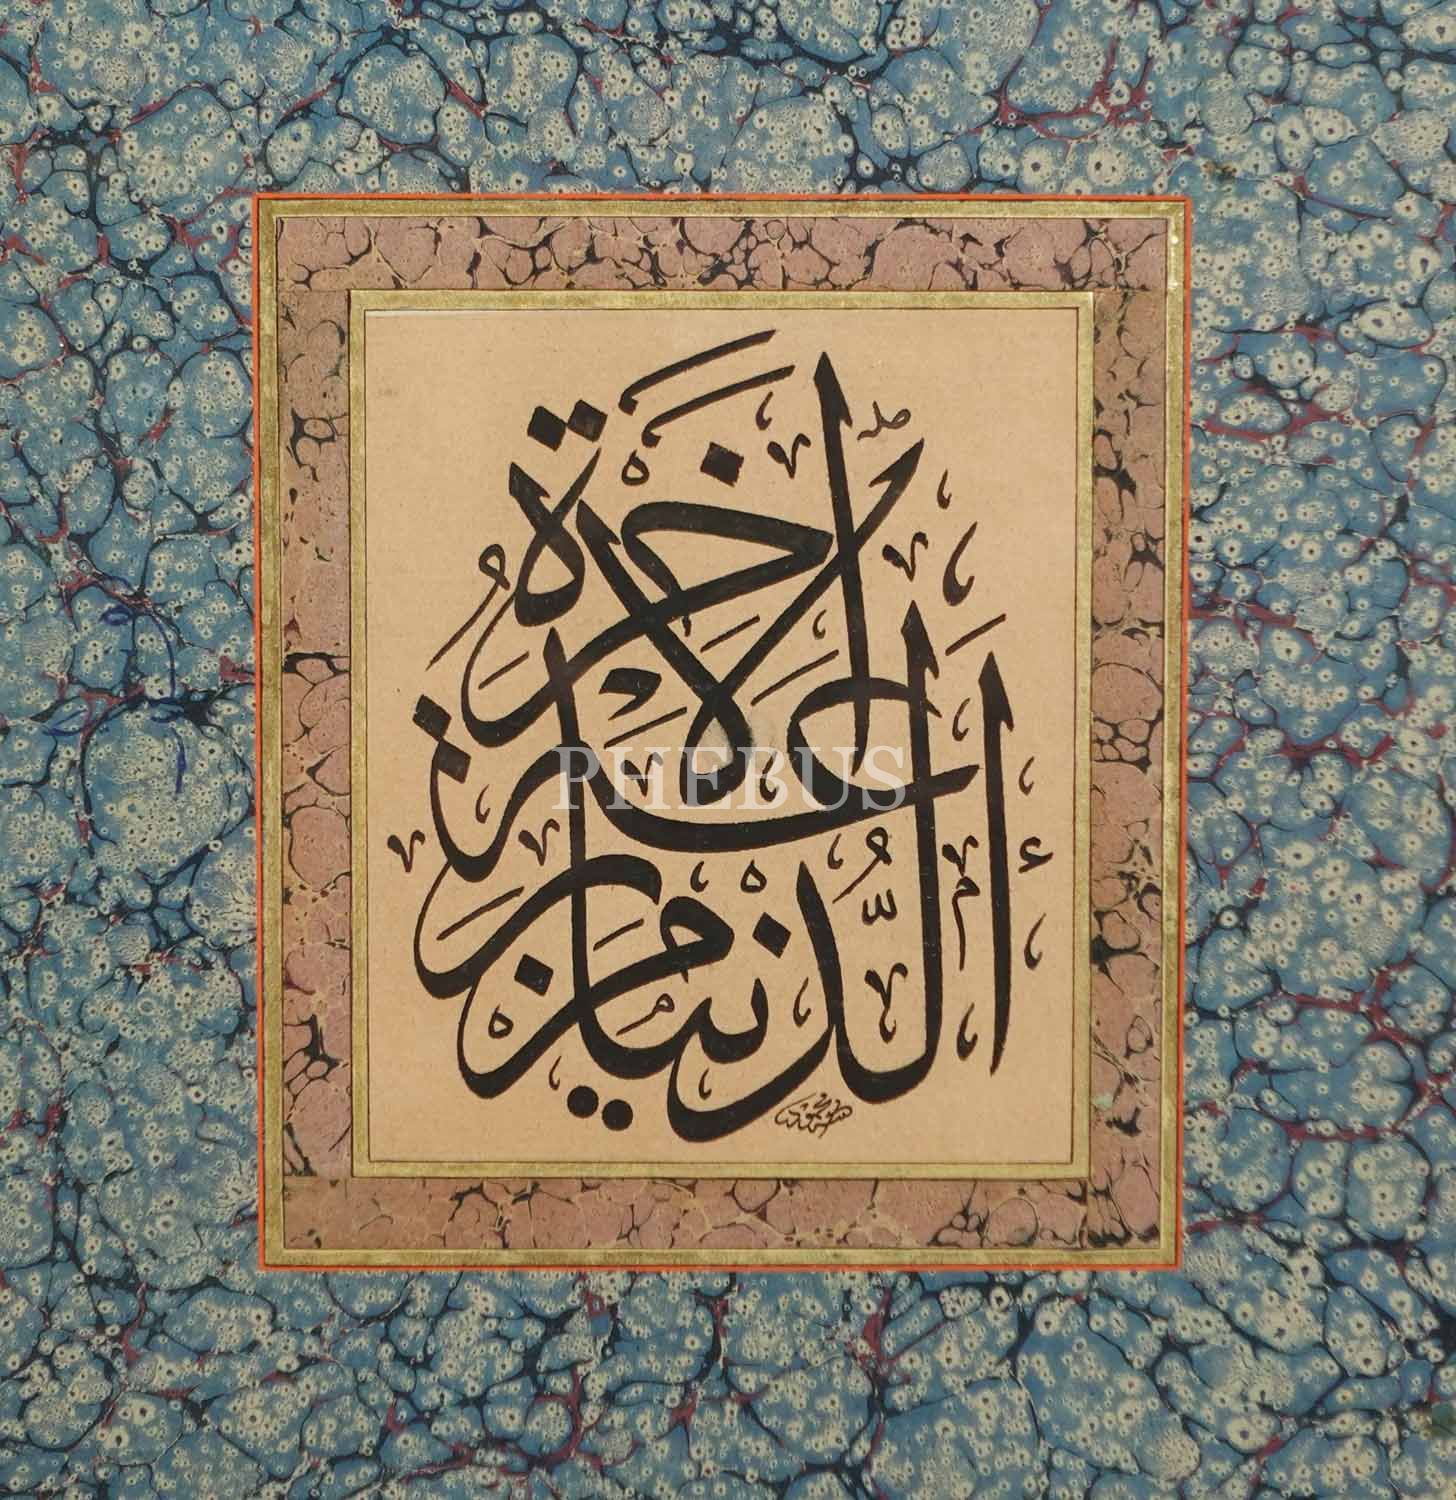 الدُّنْيَا مَزْرَعَةُ الْآخِرَةِ
PHEBUS